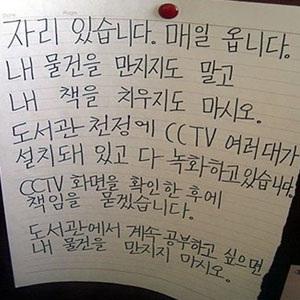 자리 있습니다. 매일 옵니다.
내 물건을 만지지도 말고
내 책을 치우지도 마시오.
도서관 천정에 CCTV 여러대가
설치돼 있고 다 녹화하고 있습니다.
CCTV 화면을 확인한 후에
책임을 묻겠습니다.
도서관에서 계속 공부하고 싶으면
내 물건을 만지지 마시오.